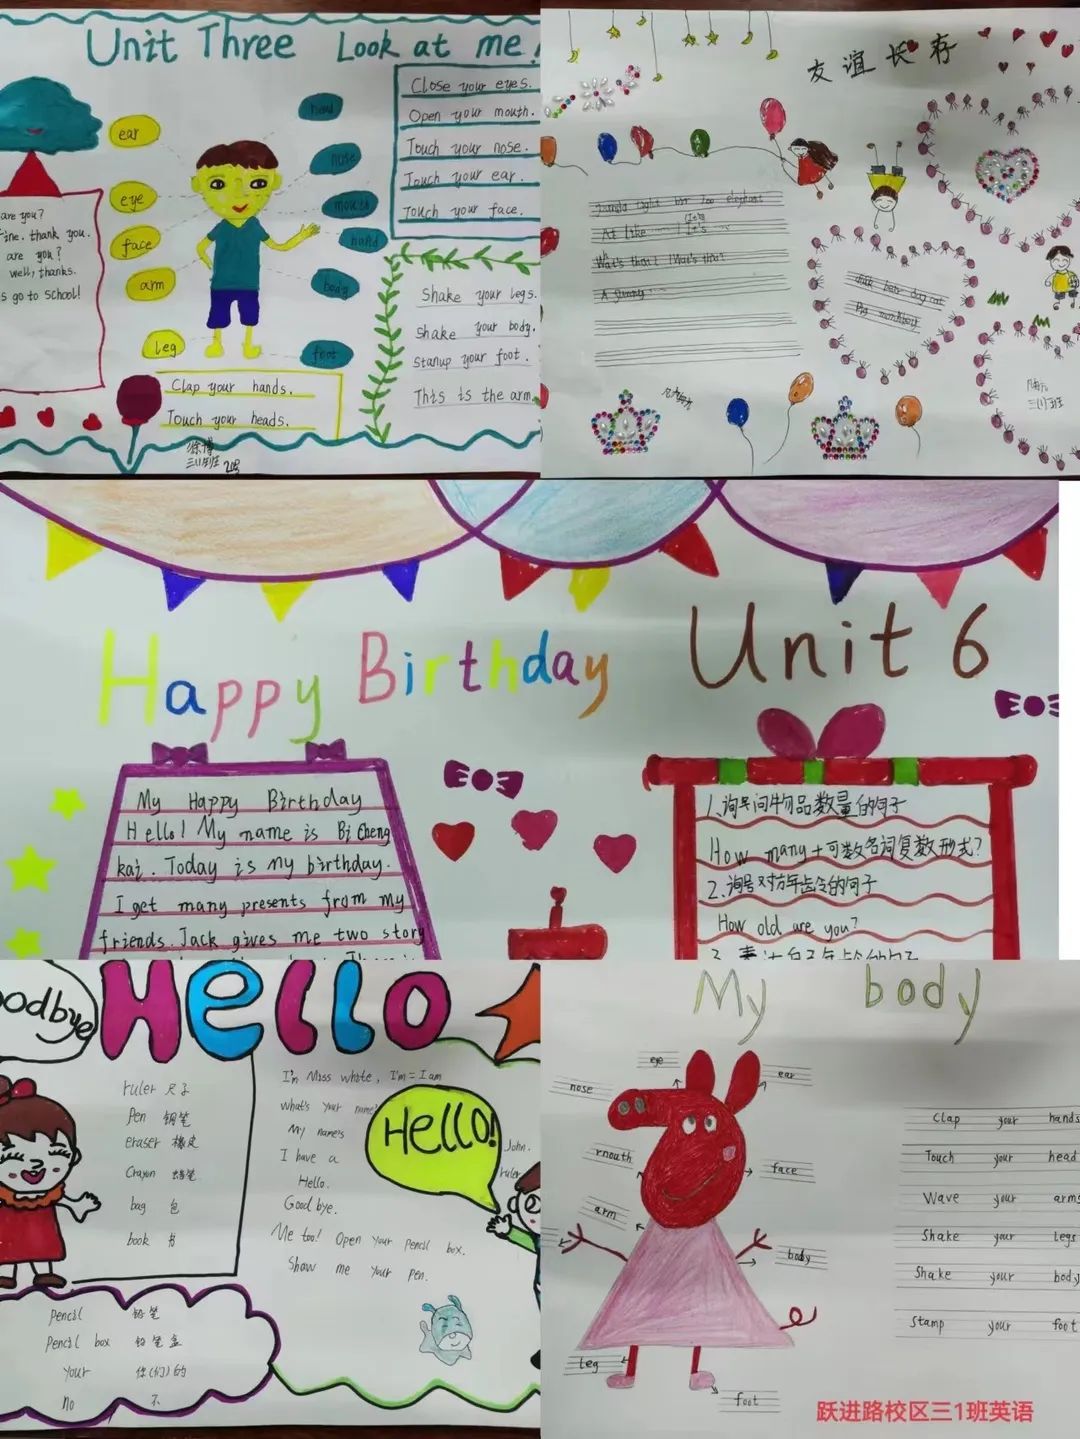 Unit Three Look at me!
ear
eye
face
arm
leg
head
nose
mouth
hand
body
foot
Close your eyes.
Open your mouth.
Touch your nose.
Touch your ear.
Touch your face.
are you?
fine. thank you.
are you?
well, thanks.
s go to School!
Shake your legs.
Shake your body.
Stanup your foot.
This is the arm.
Clap your hands.
Touch your heads.
三(1)班 2号
友谊长存
elephant
At like
It's
What's that? What's that
A funny
duck bear dog cat
Pig
三(1)班
Happy Birthday Unit 6
My Happy Birthday
Hello! My name is Bi Cheng
kai. Today is my birthday.
I get many presents from my
friends. Jack gives me two story
1.询问物品数量的句子
How many+可数名词复数形式?
2.询号对方年龄的句子
How old are you?
oodbye
Hello
ruler 尺子
Pen 钢笔
eraser 橡皮
Crayon 蜡笔
bag 包
book 书
I'm Miss white, I'm=I am
What's your name?
My name's
John.
I have a
ruler
Hello.
Good bye.
Me too! Open your pencil box.
Show me your pen.
Hello!
Pencil 铅笔
Pencil box 铅笔盒
your 你(们)的
no 不
My body
eye
ear
nose
mouth
face
arm
body
leg
foot
Clap your hands
Touch your head
Wave your arms
Shake your legs
Shake your body
Stamp your foot
跃进路校区三1班英语